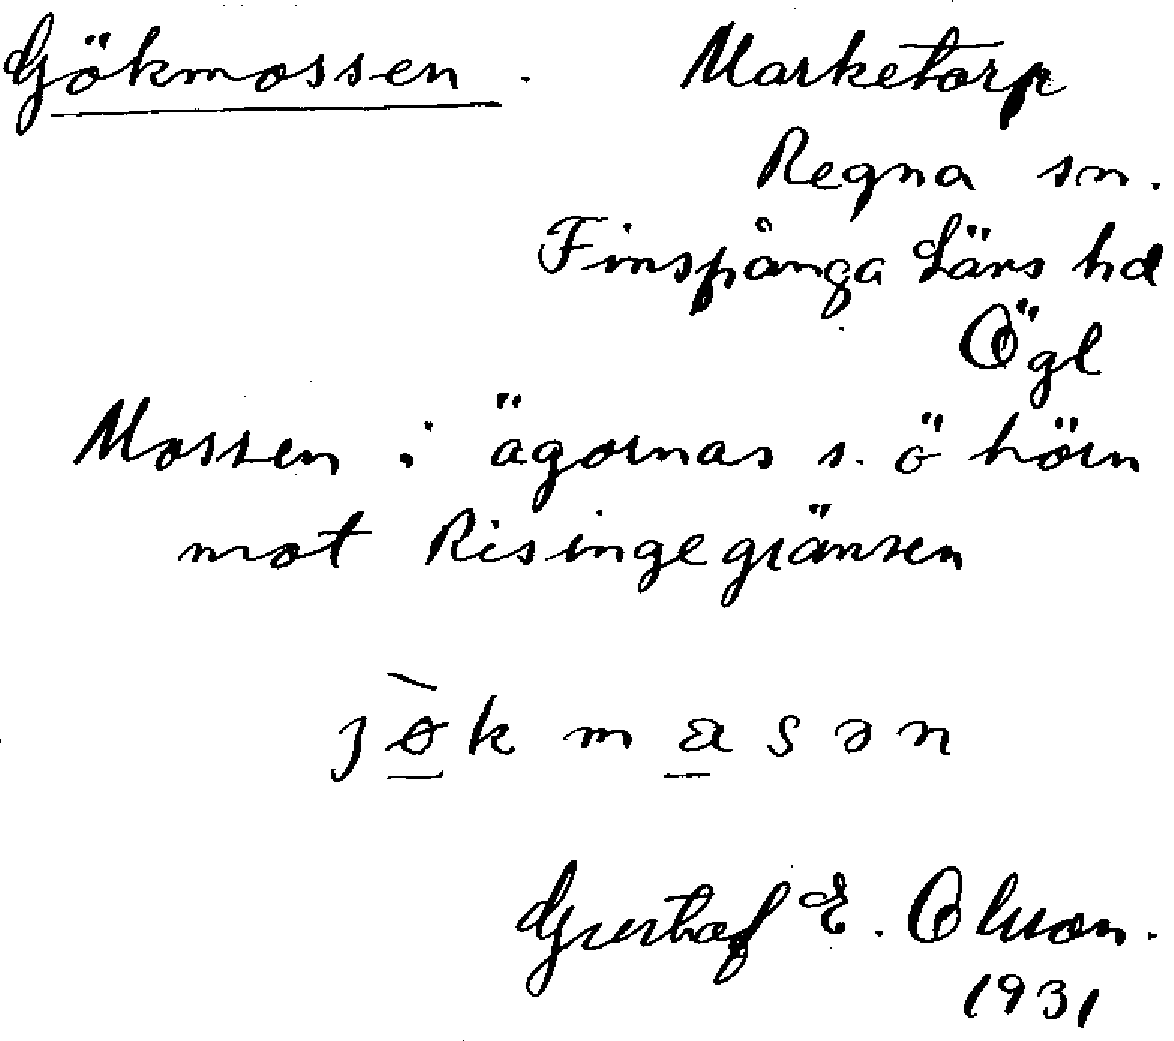 Gökmossen. Marketorp
Regna sn.
Finspånga Läns hd
Ögl
Mossen i ägornas s. ö hörn
mot Risingegränsen
jø̀k masən
Gustaf E. Olsson.
1931